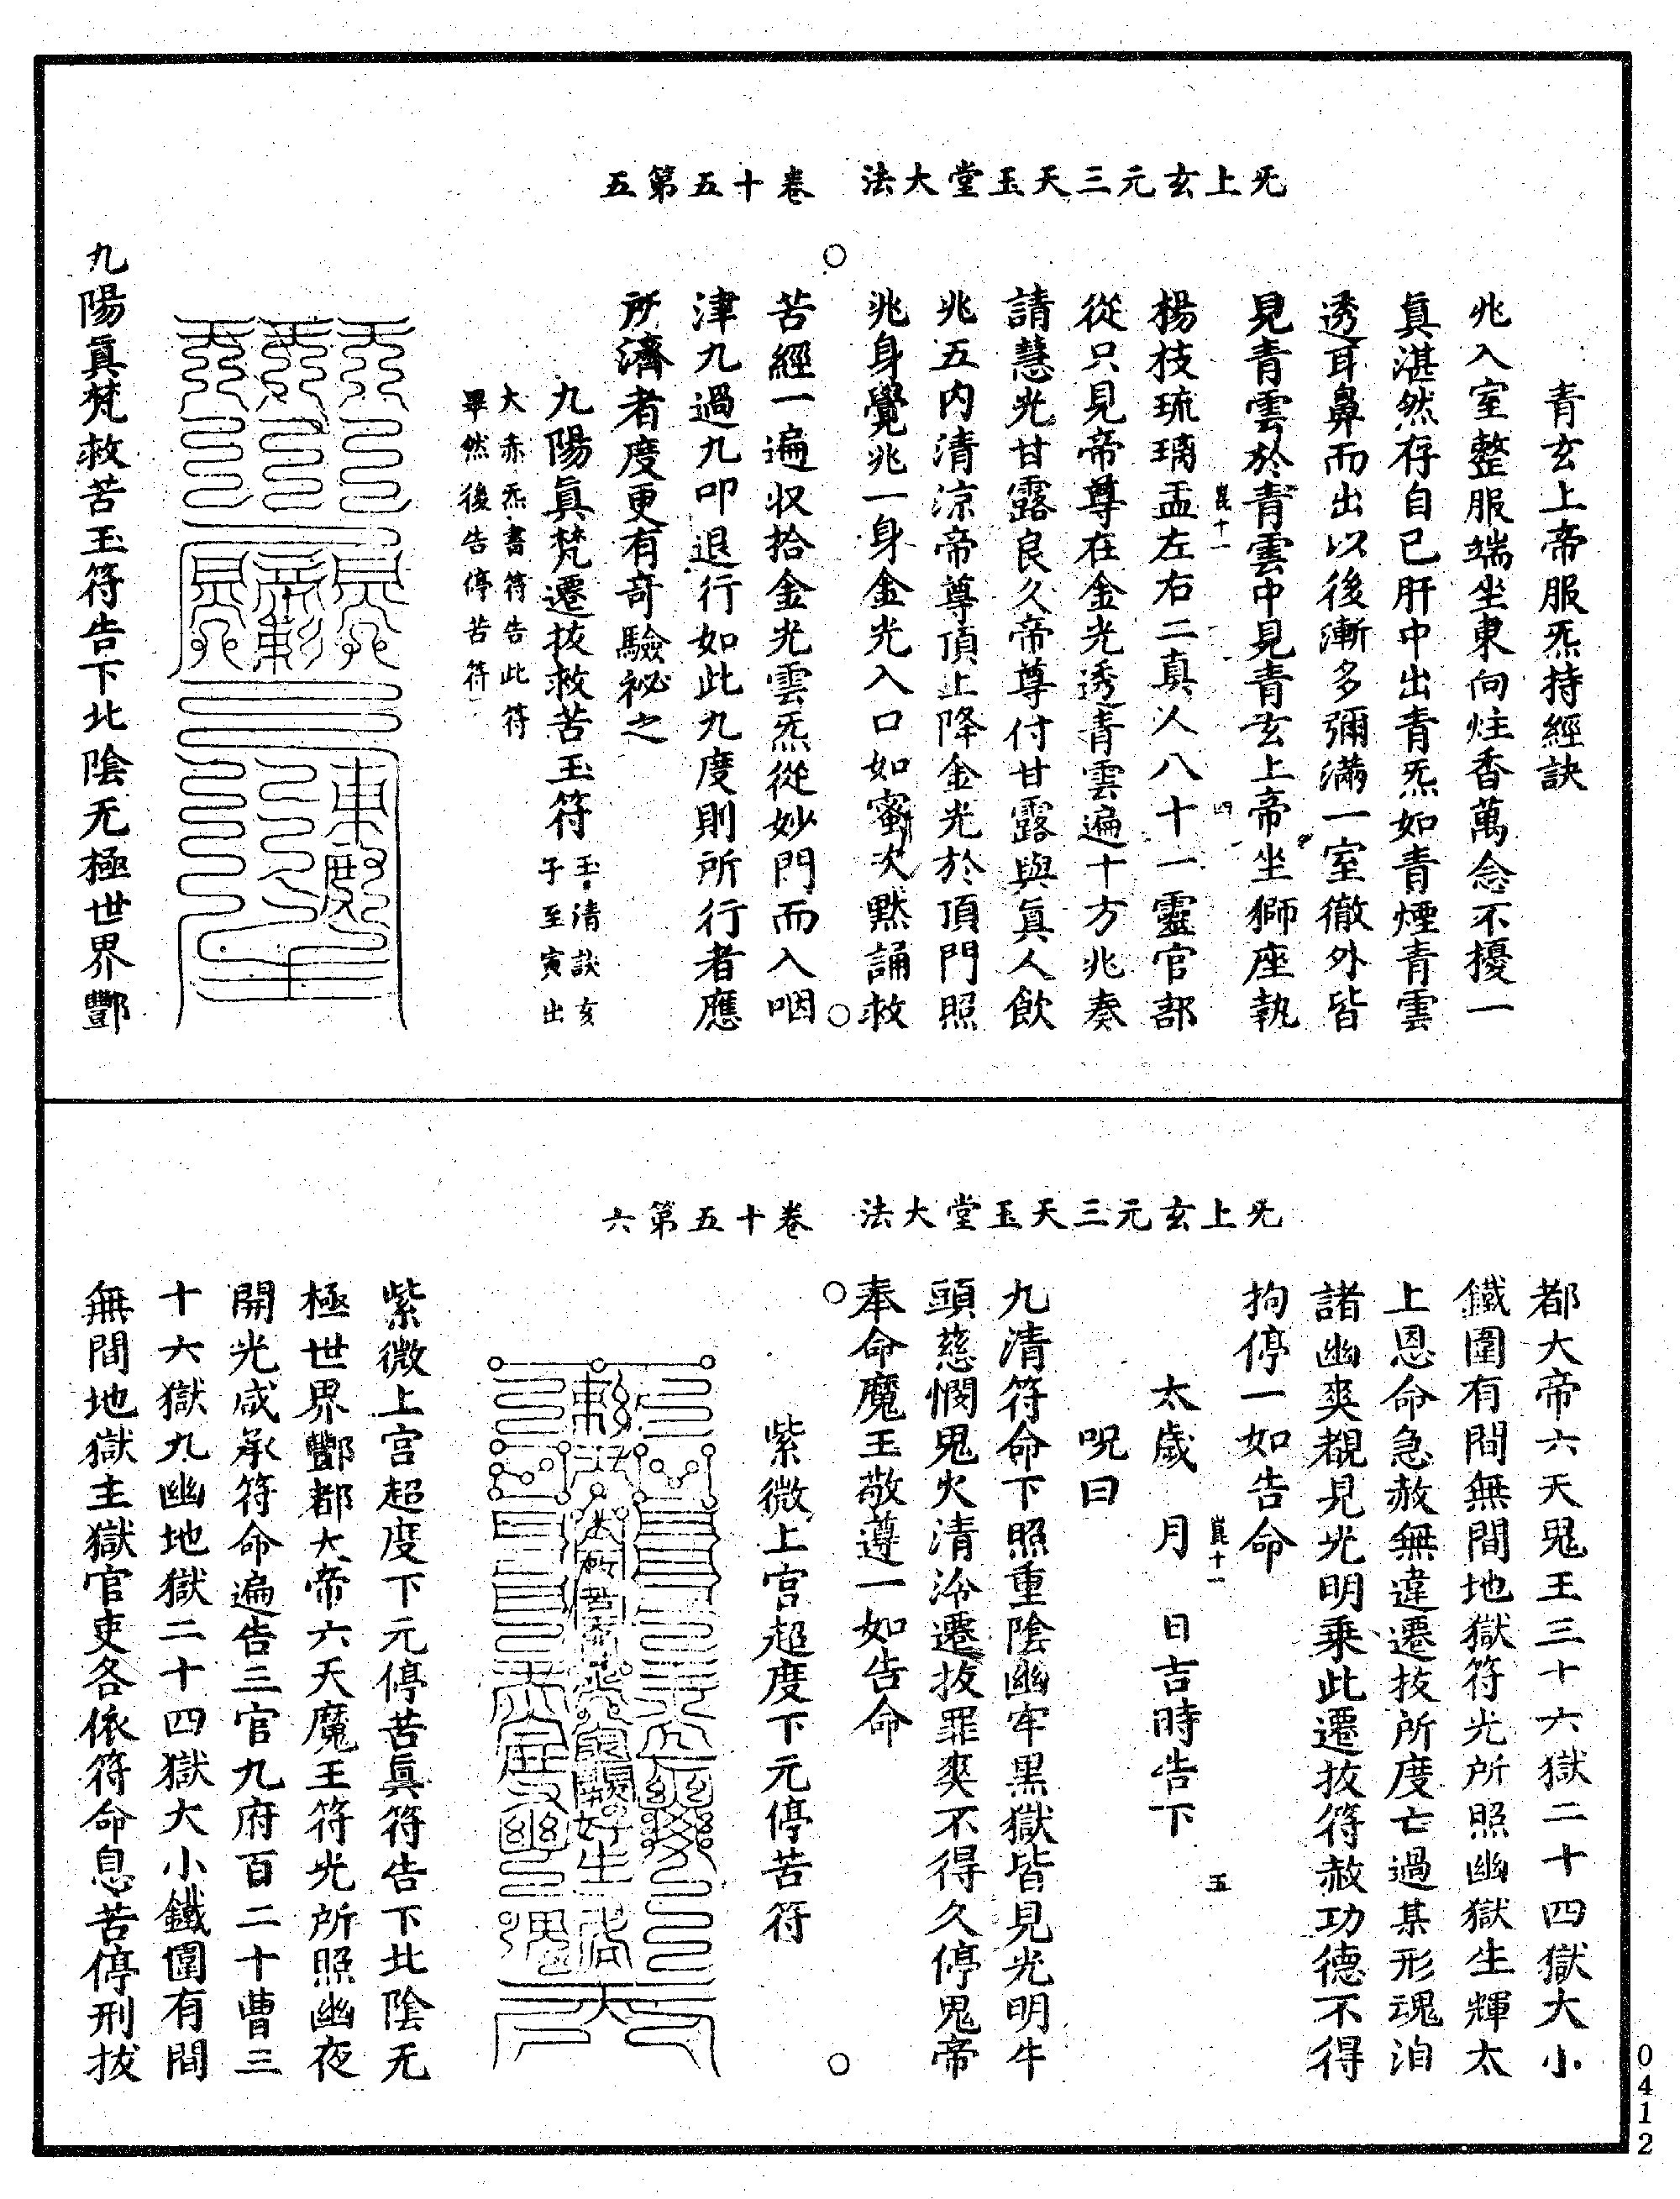 无上玄元三天玉堂大法　卷十五第五
青玄上帝服炁持經訣
兆入室整服端坐東向炷香萬念不擾一
真湛然存自己肝中出青炁如青煙青雲
透耳鼻而出以後漸多彌滿一室徹外皆
見青雲於青雲中見青玄上帝坐獅座執
崑十一　四
楊枝琉璃盂左右二真人八十一靈官部
從只見帝尊在金光透青雲遍十方兆奏
請慧光甘露良久帝尊付甘露與真人飲
兆五内清涼帝尊頂上降金光於頂門照
兆身覺兆一身金光入口如蜜次默誦救
苦經一遍收拾金光雲炁從妙門而入咽
津九過九叩退行如此九度則所行者應
所濟者度更有奇驗祕之
九陽真梵遷拔救苦玉符玉清訣亥
子至寅出
大赤炁書符告此符
畢然後告停苦符
九陽真梵救苦玉符告下北陰无極世界酆
无上玄元三天玉堂大法　卷十五第六
都大帝六天鬼王三十六獄二十四獄大小
鐵圍有間無間地獄符光所照幽獄生輝太
上恩命急赦無違遷拔所度亡過某形魂洎
諸幽爽覩見光明乘此遷拔符赦功德不得
拘停一如告命
崑十一　五
太歲　月　日吉時告下
呪曰
九清符命下照重陰幽牢黑獄皆見光明牛
頭慈憫鬼火清泠遷拔罪爽不得久停鬼帝
奉命魔王敬遵一如告命
紫微上宫超度下元停苦符
紫微上宫超度下元停苦真符告下北陰无
極世界酆都大帝六天魔王符光所照幽夜
開光咸承符命遍告三官九府百二十曹三
十六獄九幽地獄二十四獄大小鐵圍有間
無間地獄主獄官吏各依符命息苦停刑拔
0412